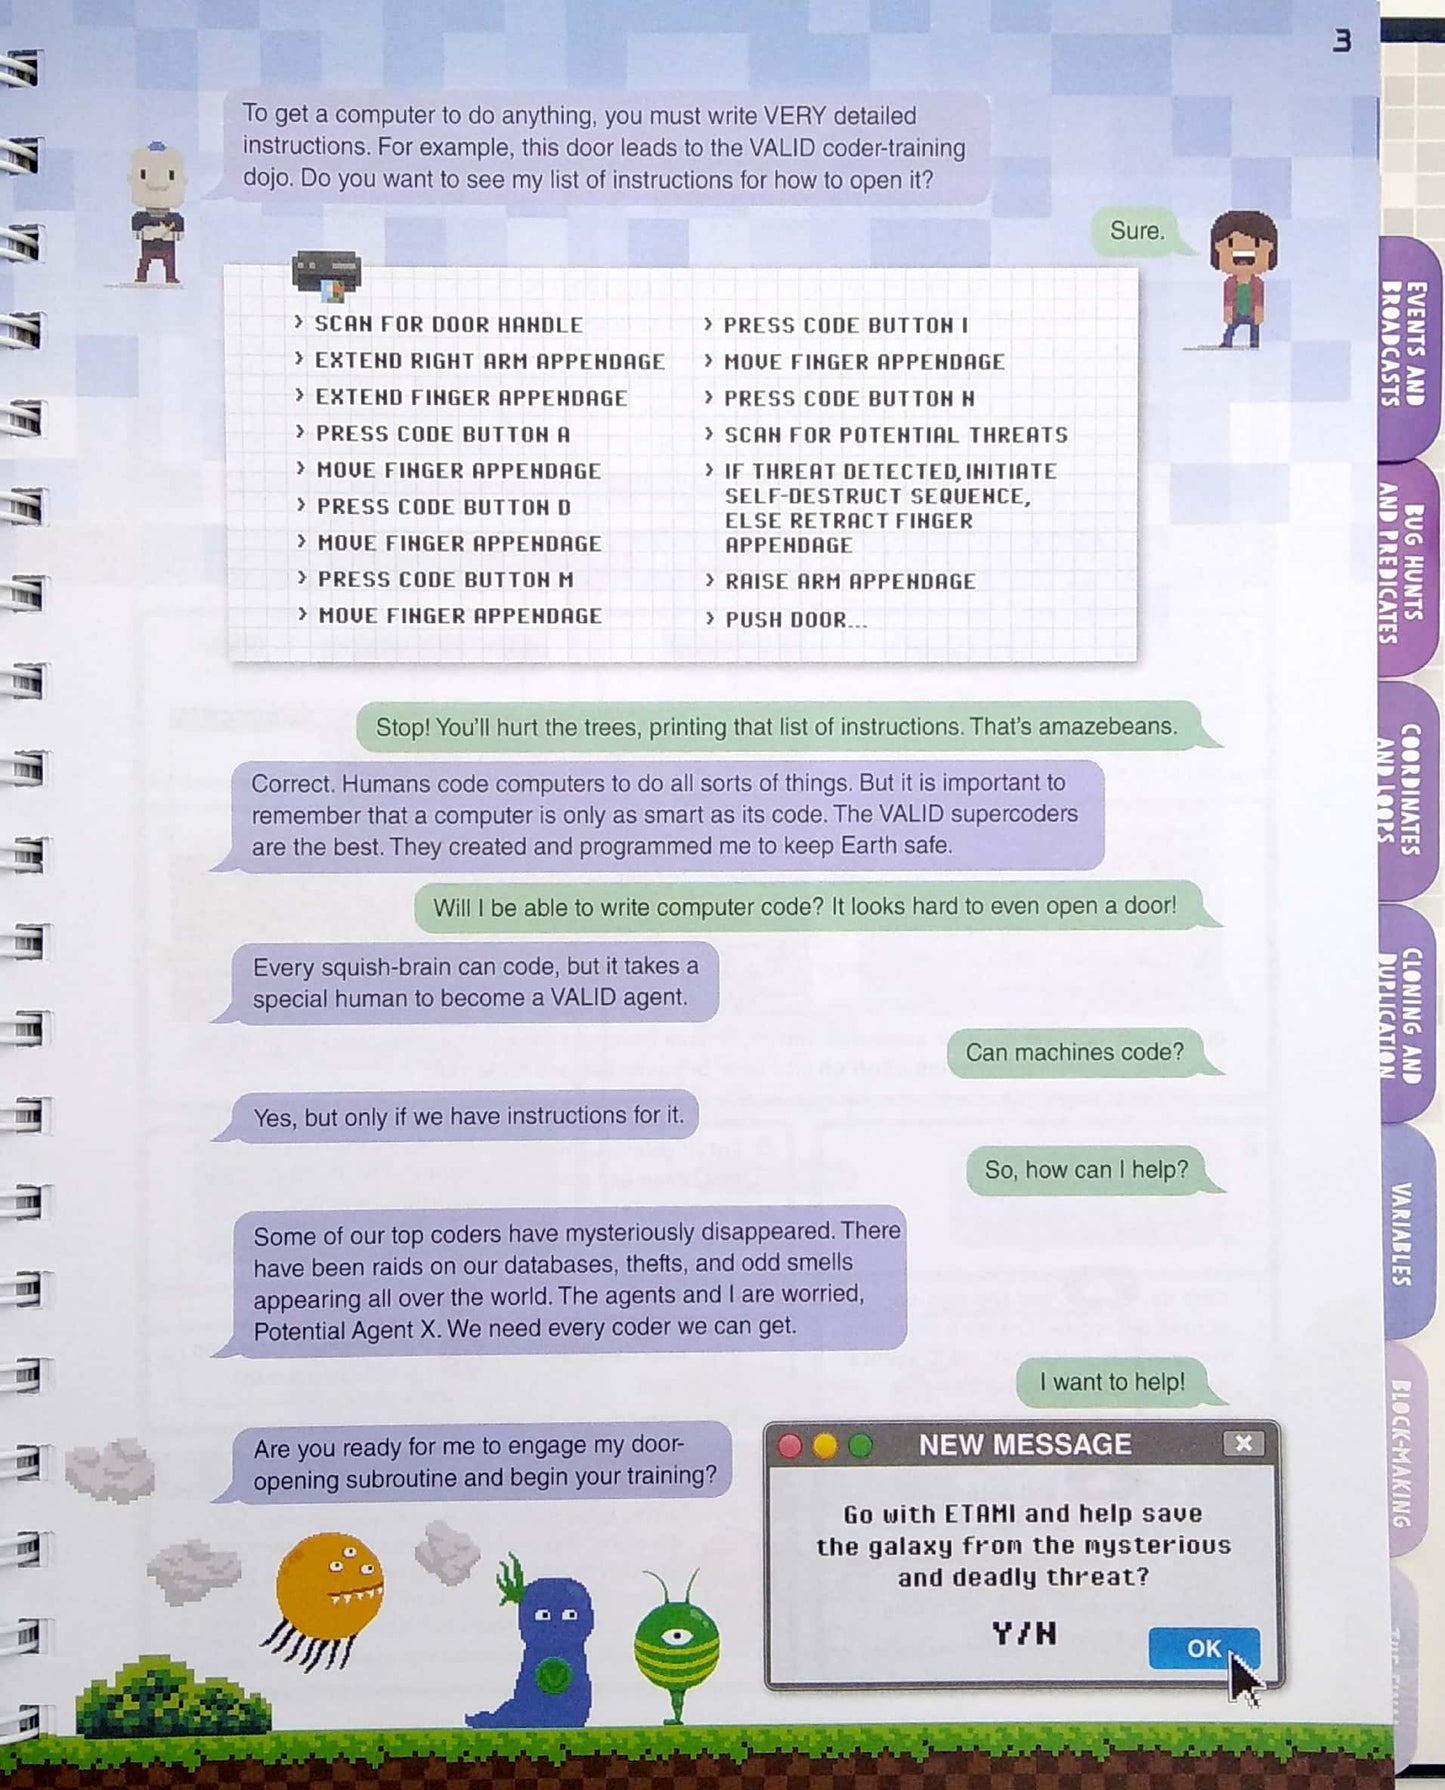 3
To get a computer to do anything, you must write VERY detailed
instructions. For example, this door leads to the VALID coder-training
dojo. Do you want to see my list of instructions for how to open it?
Sure.
> SCAN FOR DOOR HANDLE
> EXTEND RIGHT ARM APPENDAGE
> EXTEND FINGER APPENDAGE
> PRESS CODE BUTTON A
> MOVE FINGER APPENDAGE
> PRESS CODE BUTTON D
> MOVE FINGER APPENDAGE
> PRESS CODE BUTTON M
> MOVE FINGER APPENDAGE
> PRESS CODE BUTTON I
> MOVE FINGER APPENDAGE
> PRESS CODE BUTTON N
> SCAN FOR POTENTIAL THREATS
> IF THREAT DETECTED, INITIATE
SELF-DESTRUCT SEQUENCE,
ELSE RETRACT FINGER
APPENDAGE
> RAISE ARM APPENDAGE
> PUSH DOOR...
Stop! You'll hurt the trees, printing that list of instructions. That's amazebeans.
Correct. Humans code computers to do all sorts of things. But it is important to
remember that a computer is only as smart as its code. The VALID supercoders
are the best. They created and programmed me to keep Earth safe.
Will I be able to write computer code? It looks hard to even open a door!
Every squish-brain can code, but it takes a
special human to become a VALID agent.
Can machines code?
Yes, but only if we have instructions for it.
So, how can I help?
Some of our top coders have mysteriously disappeared. There
have been raids on our databases, thefts, and odd smells
appearing all over the world. The agents and I are worried,
Potential Agent X. We need every coder we can get.
I want to help!
Are you ready for me to engage my door-
opening subroutine and begin your training?
NEW MESSAGE
X
Go with ETAMI and help save
the galaxy from the mysterious
and deadly threat?
Y/N
OK
EVENTS AND
BROADCASTS
BUG HUNTS
AND PREDICATES
COORDINATES
AND LOOPS
CLONING AND
DUPLICATION
VARIABLES
BLOCK-MAKING